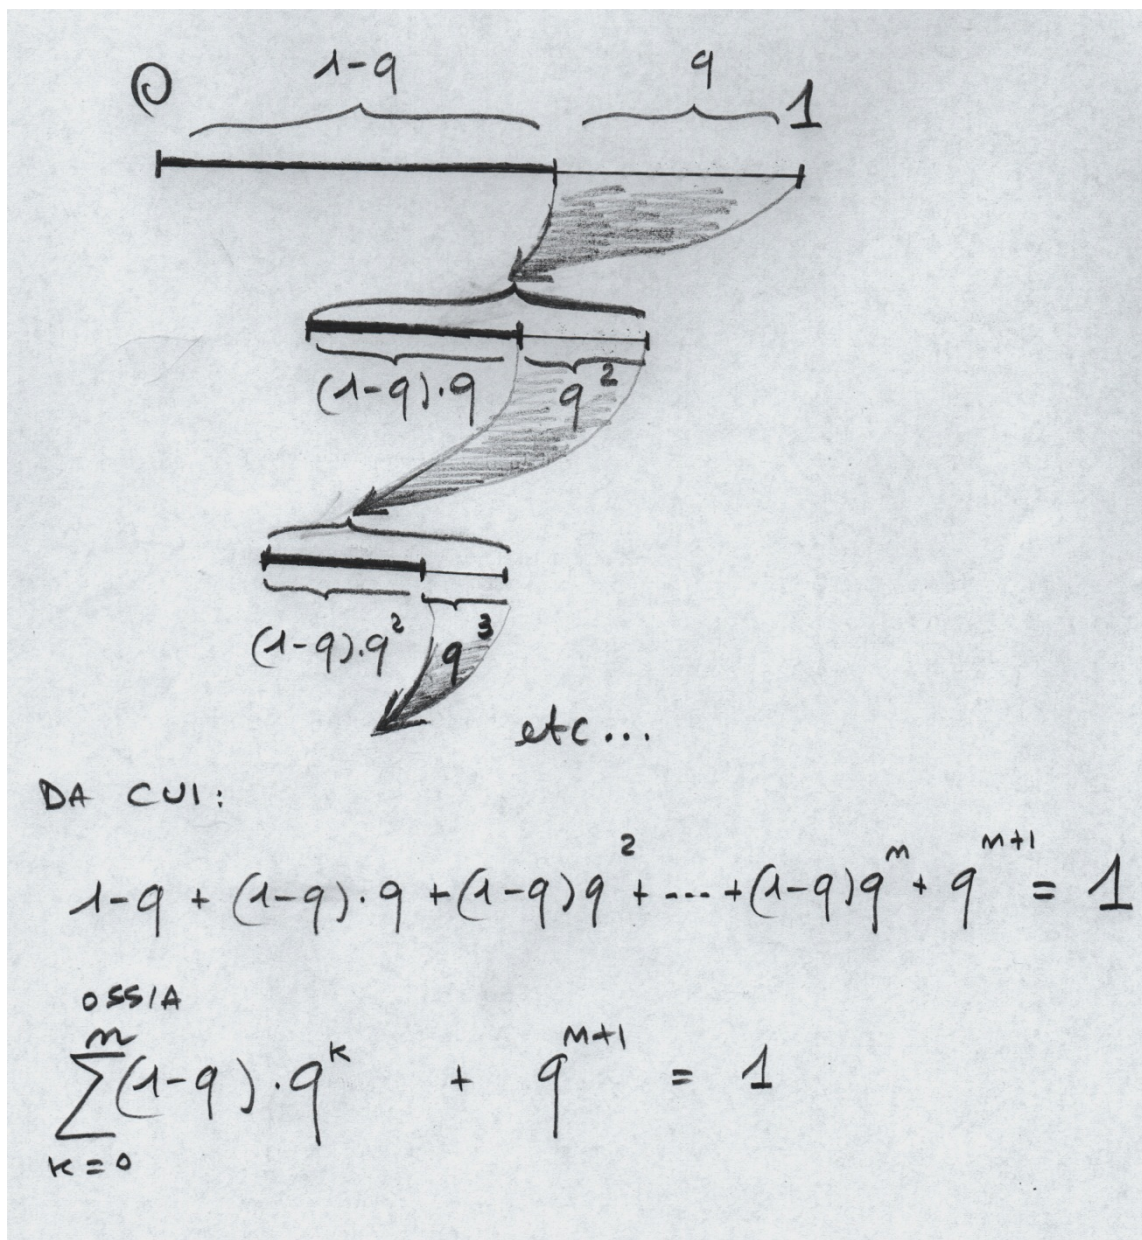 0 1-q q 1
(1-q)·q q²
(1-q)·q² q³
etc...
DA CUI:
1-q + (1-q)·q + (1-q)q² + ---- + (1-q)qⁿ + qⁿ⁺¹ = 1
OSSIA
n
∑(1-q)·qᵏ + qⁿ⁺¹ = 1
k=0